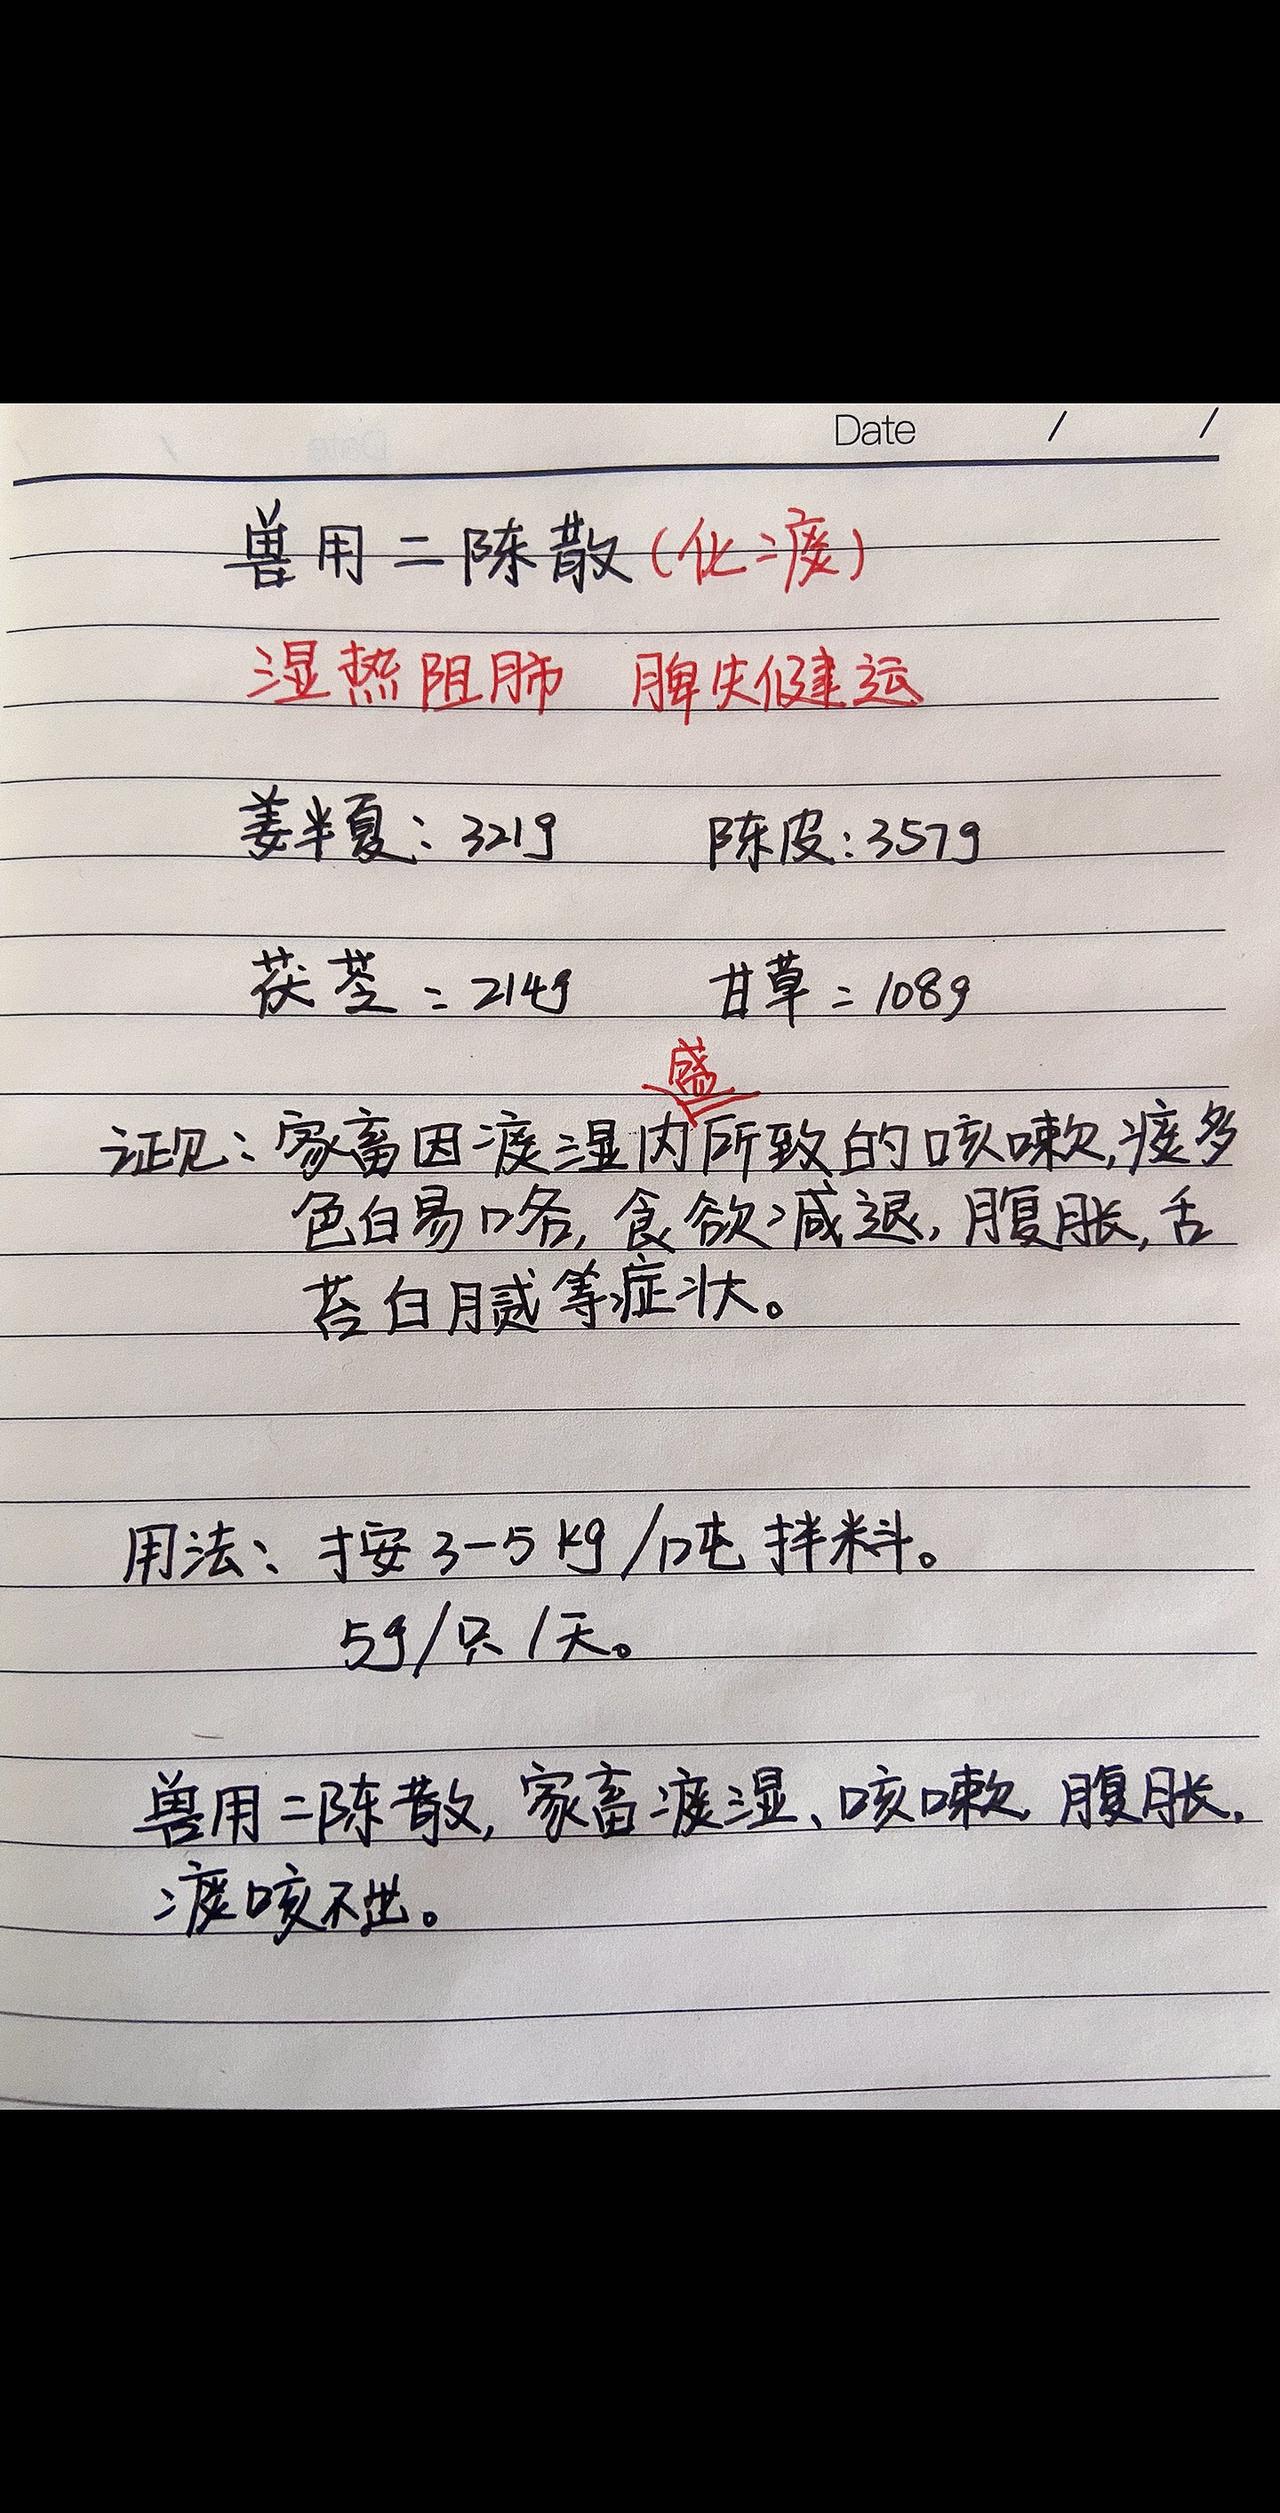 Date / /
兽用二陈散(化痰)
湿热阻肺 脾失健运
姜半夏：321g 陈皮：357g
茯苓：214g 甘草：108g
盛
证见：家畜因痰湿内所致的咳嗽,痰多
色白易咯,食欲减退,腹胀,舌
苔白腻等症状。
用法：按3-5kg/吨拌料。
5g/只/天。
兽用二陈散,家畜痰湿、咳嗽,腹胀,
痰咳不出。